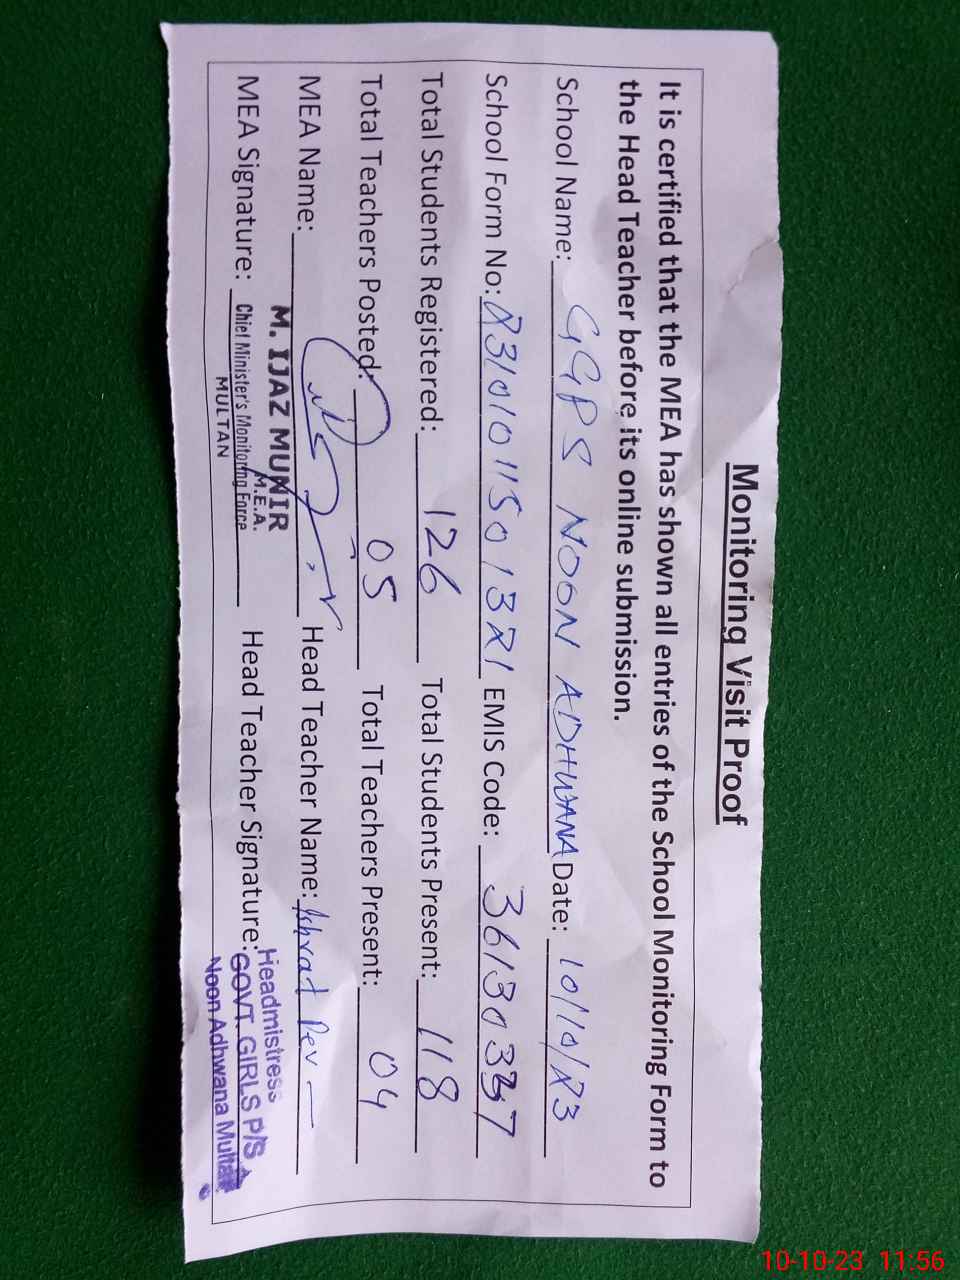 Monitoring Visit Proof
It is certified that the MEA has shown all entries of the School Monitoring Form to
the Head Teacher before its online submission.
School Name: GGPS NOON ADHWANA Date: 10/10/23
School Form No: 23101011501321 EMIS Code: 36130337
Total Students Registered: 126 Total Students Present: 118
Total Teachers Posted: 05 Total Teachers Present: 04
MEA Name: Head Teacher Name:
M. IJAZ MUNIR
M.E.A.
MEA Signature: Chief Minister's Monitoring Force Head Teacher Signature:
MULTAN
Headmistress
GOVT. GIRLS P/S
Noon Adhwana Multan
10-10-23 11:56